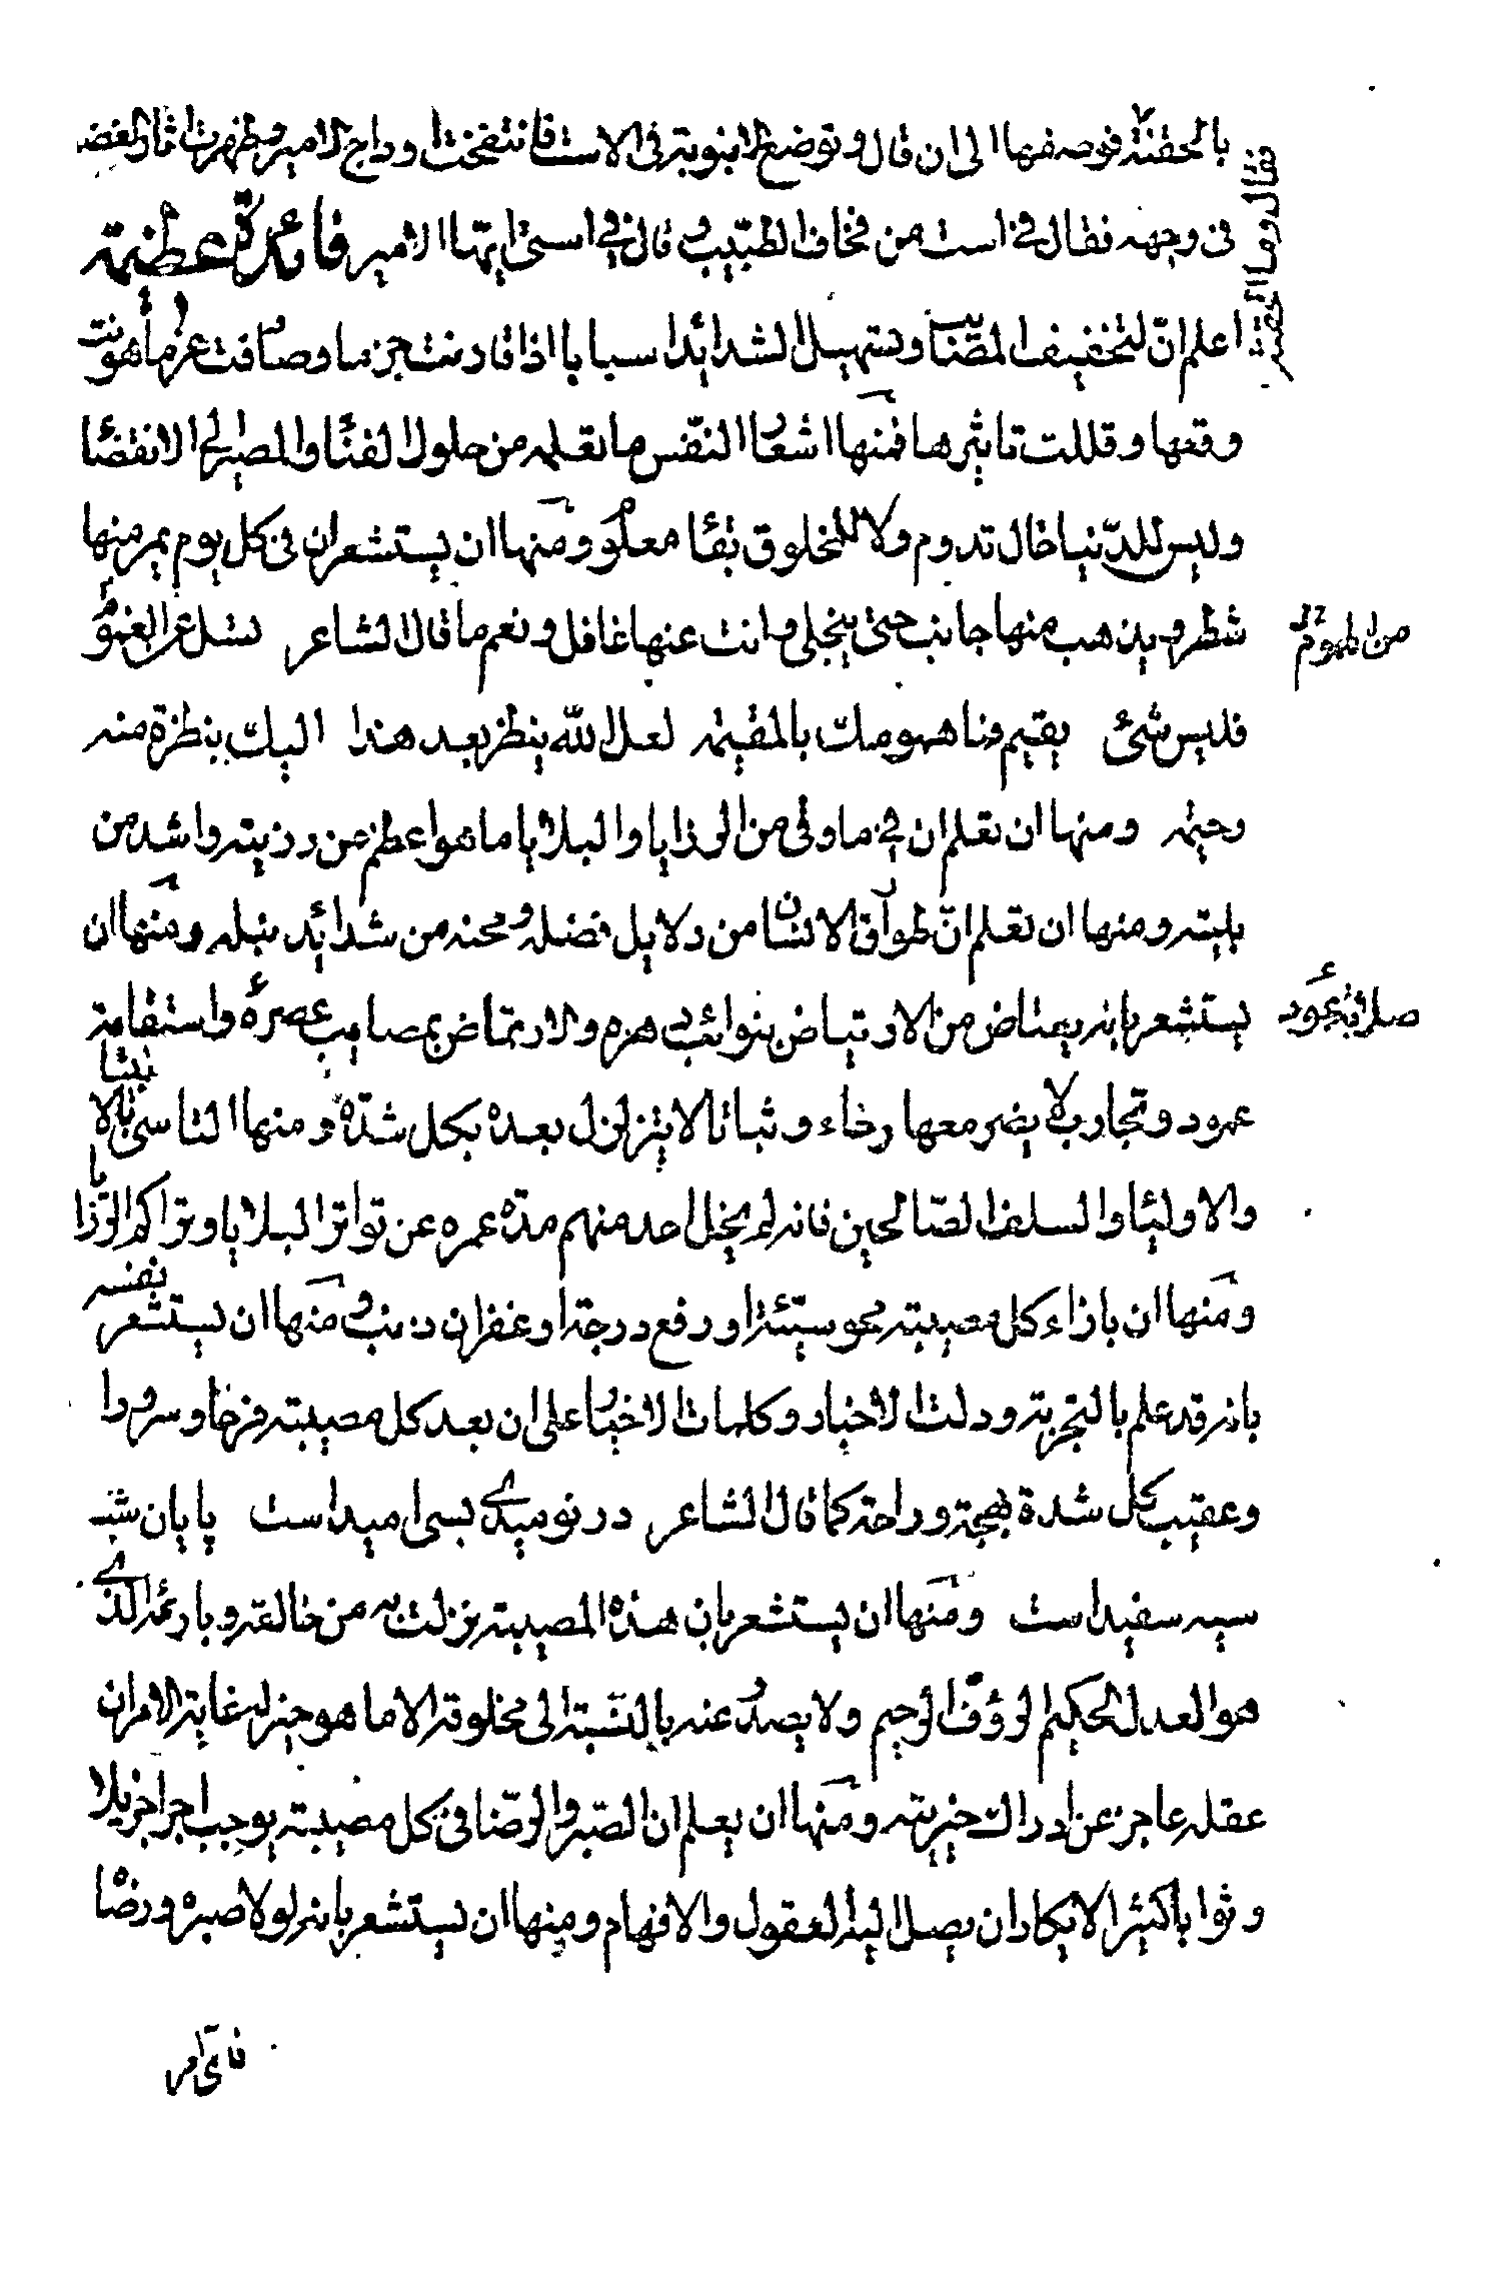 بالحقنة فوصفها الى ان قال وتوضع الانبوبة فى الاست فانتفخت اوداج الامير وظهرت اثار الغضب
فى وجهه فقال فى است من فخاف الطبيب وقال فى استى ايها الامير فائدة عظيمة
فقال وما الحقنة
اعلم انّ لتخفيف المصائب وتسهيل الشدائد اسبابا اذا قارنت حزما وصادفت عزما هونت
وقعها وقللت تاثيرها فمنها اشعار النّفس ما تعلمه من حلول الفناء والمصير الى الانقضاء
وليس للدّنيا حال تدوم ولا للمخلوق بقاء معلوم ومنها ان يستشعر ان فى كل يوم يمر منها
شطر ويذهب منها جانب حتى ينجلى وانت عنها غافل ونعم ما قال الشاعر تسل عن الغموم
من الهموم
فليس شئ يقيم فما همومك بالمقيمه لعل الله ينظر بعد هذا اليك بنظرة منه
رحيمه ومنها ان تعلم ان فى ما وقى من الرزايا والبلايا ما هو اعظم من رزيته واشد من
بليته ومنها ان تعلم انّ طوارق الانسان من دلايل فضله ومحنه من شدائد نبله ومنها ان
يستشعر بانه يعتاض من الارتياض بنوائب دهره والارتماض بمصايب عصره واستقامة
صلابة عود
عمود وتجارب لا يضر معها رخاء وثباتا لا يتزلزل بعده بكل شدّة ومنها التاسى بالانبياء
والاولياء والسلف الصّالحين فانه لم يخل احد منهم مدة عمره عن تواتر البلايا وتراكم الرّزايا
ومنها ان بازاء كل مصيبة محو سيّئة او رفع درجة او غفران ذنب ومنها ان يستشعر نفسه
بانه قد علم بالتجربة ودلت الاخبار وكلمات الاخيار على ان بعد كل مصيبة فرحا وسرورا
وعقيب كل شدة بهجة وراحة كما قال الشاعر در نوميدى بسى اميد است پايان شب
سيه سفيد است ومنها ان يستشعر بان هذه المصيبة نزلت به من خالقه وبارئه الذى
هو العدل الحكيم الرؤف الرحيم ولا يصدر عنه بالنسبة الى مخلوقه الا ما هو خير له غاية الامر ان
عقله عاجز عن ادراك خيريته ومنها ان يعلم ان الصّبر والرضا فى كل مصيبة يوجب اجرا جزيلا
وثوابا كثيرا لا يكاد ان يصل اليه العقول والافهام ومنها ان يستشعر بانه لولا صبره ورضاه
فاى امر